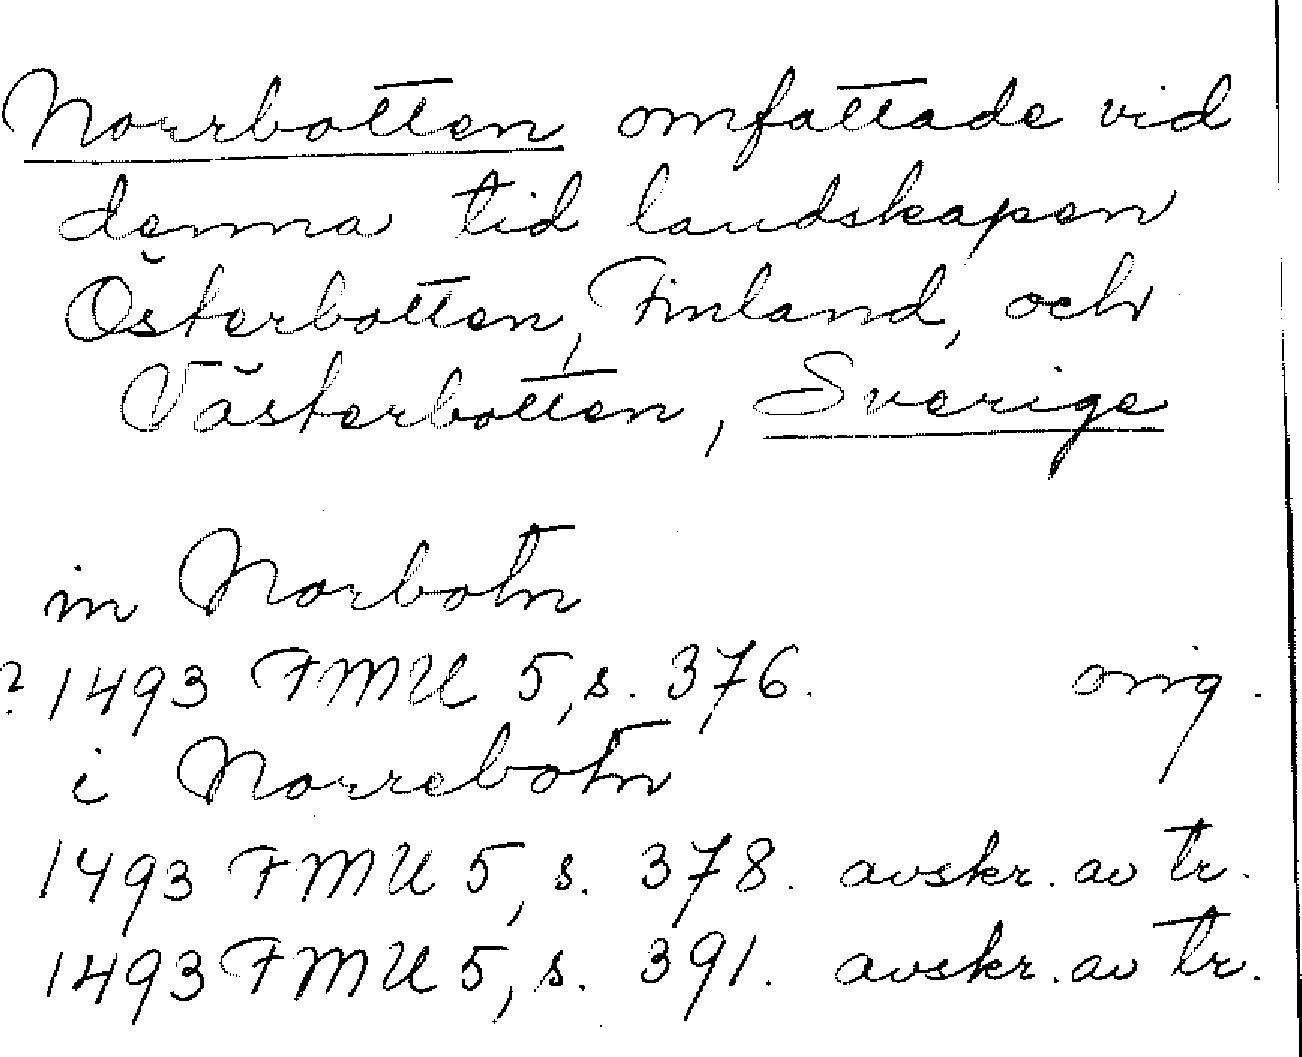 Norrbotten omfattade vid
denna tid landskapen
Österbotten, Finland, och
Västerbotten, Sverige
in Norbotn
? 1493 FMU 5, s. 376. orig.
i Norrebotn
1493 FMU 5, s. 378. avskr. av tr.
1493 FMU 5, s. 391. avskr. av tr.